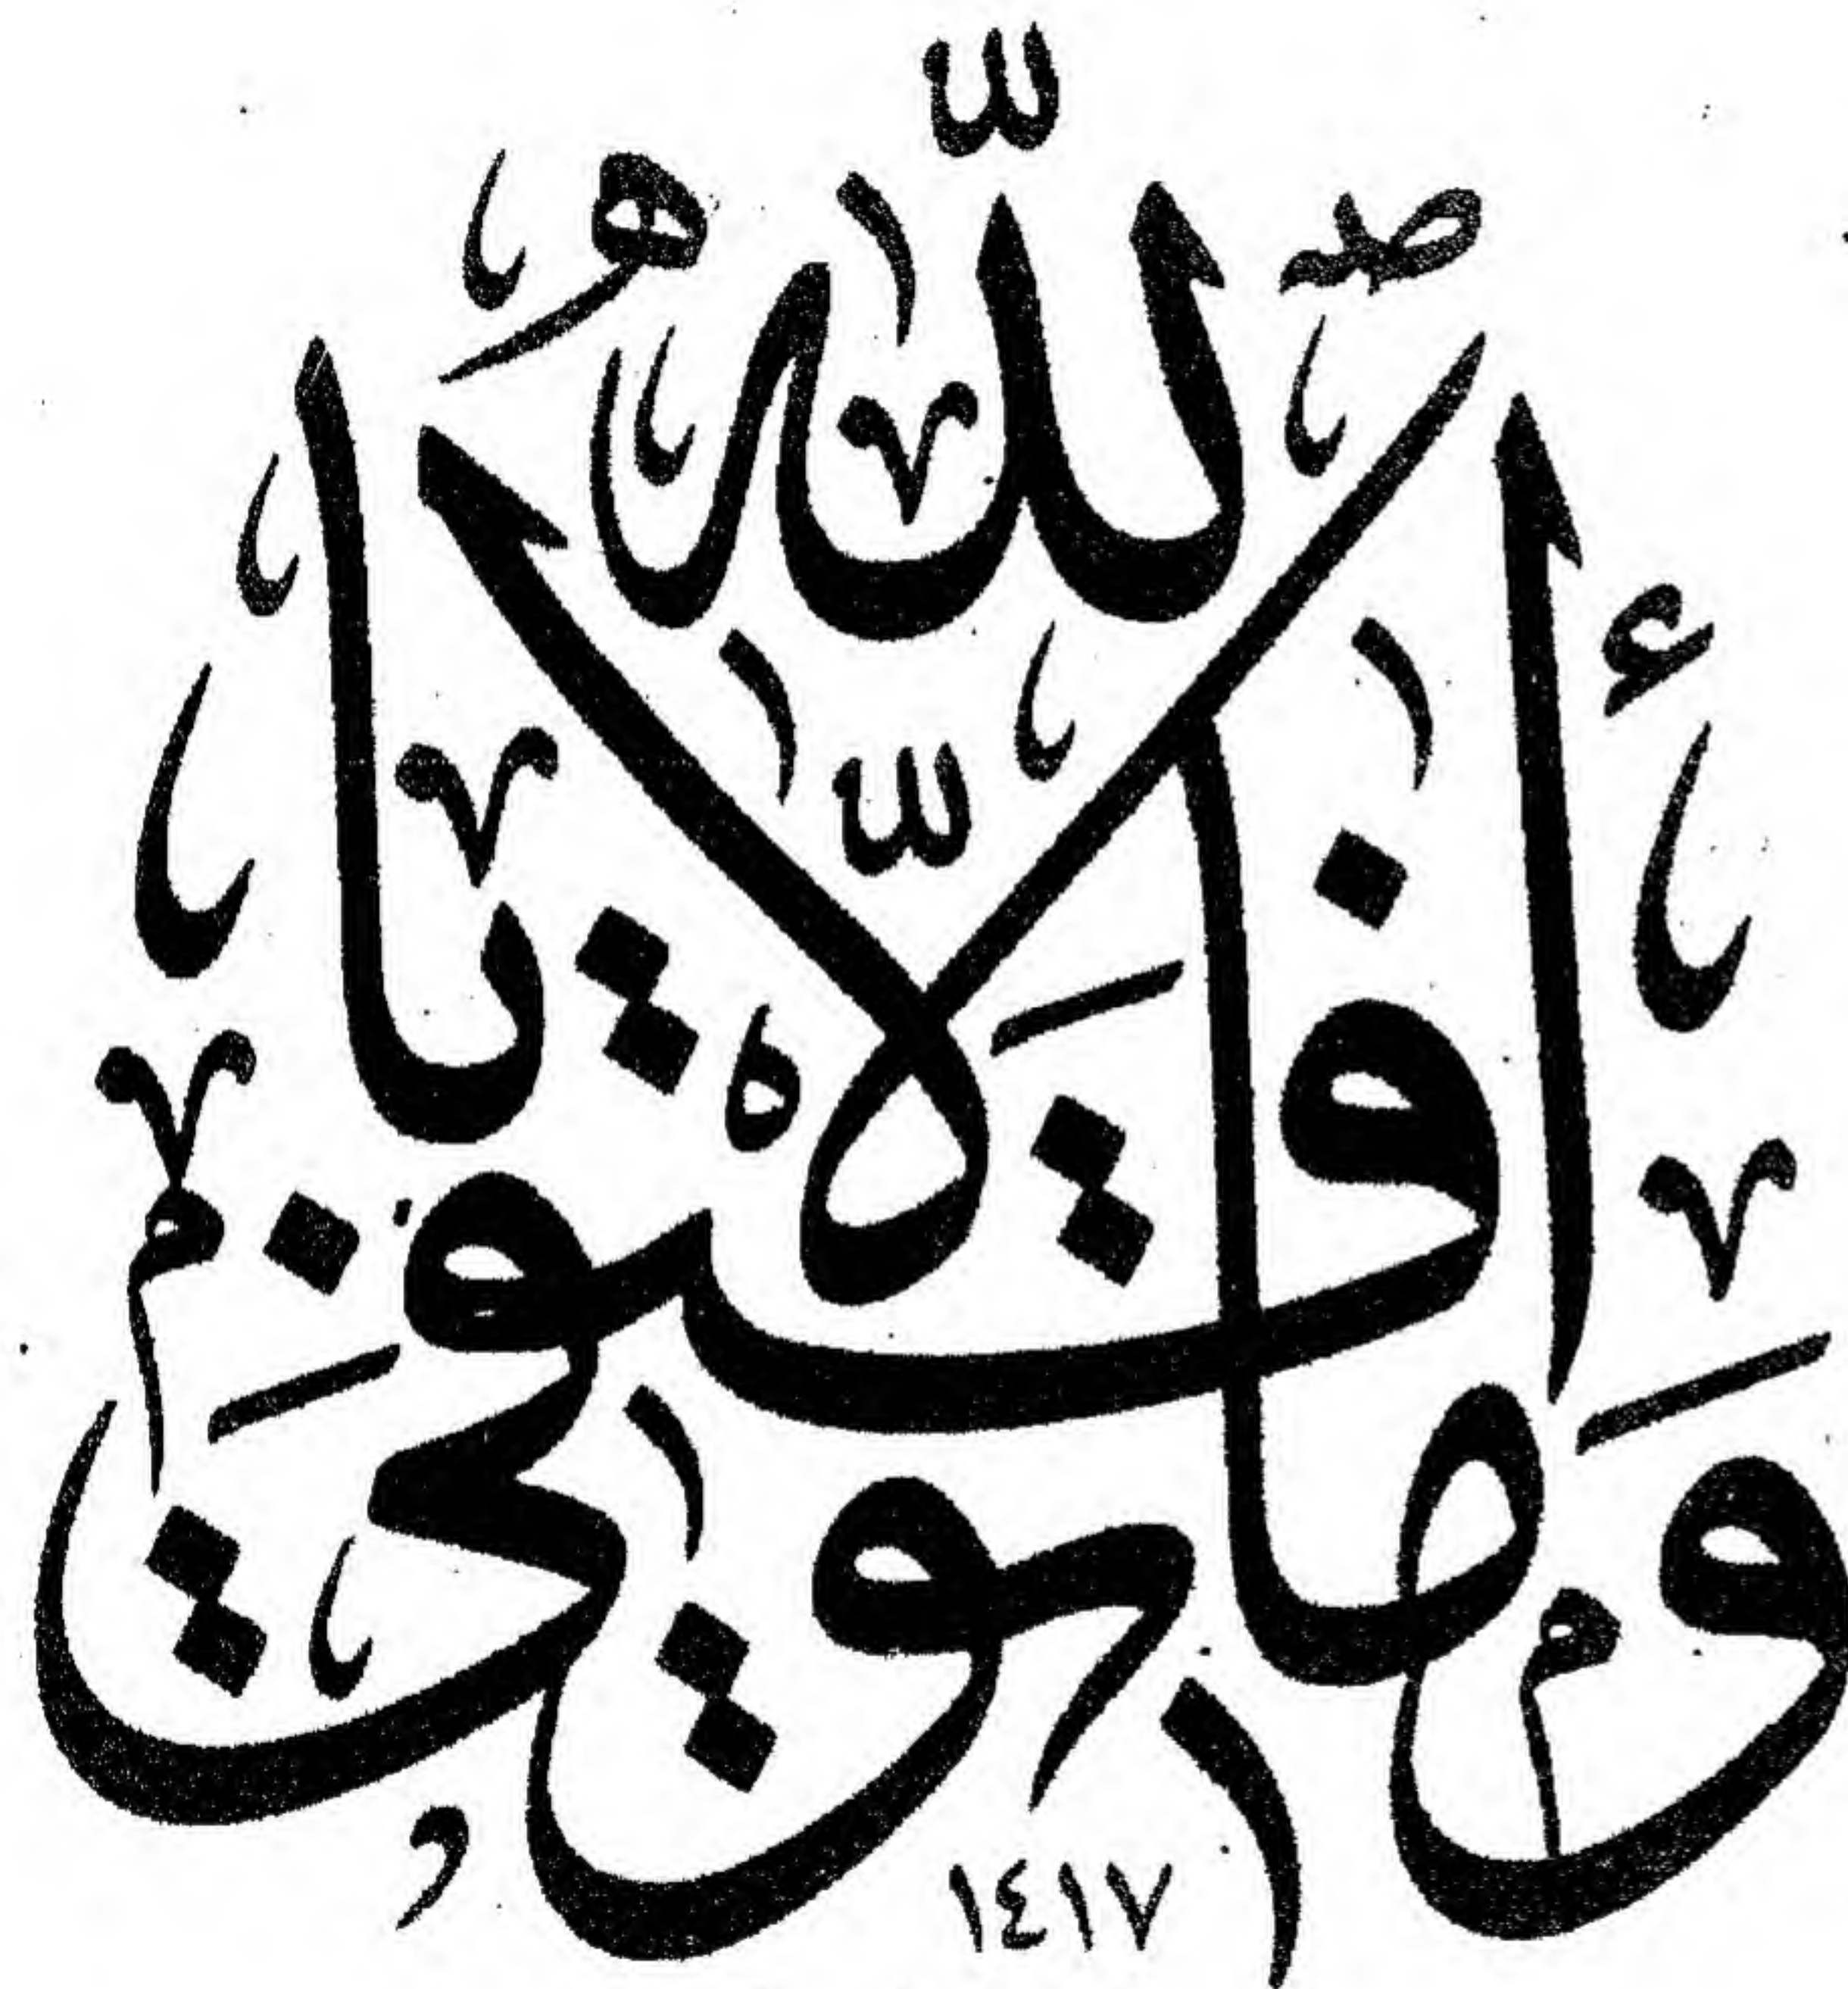 وما توفيقي إلا بالله
١٤١٧